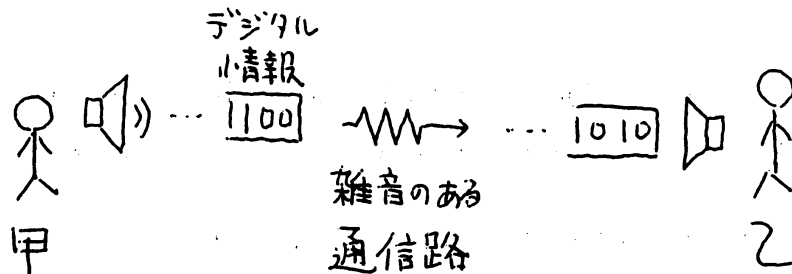 デジタル
情報
1100
1010
雑音のある
通信路
甲
乙